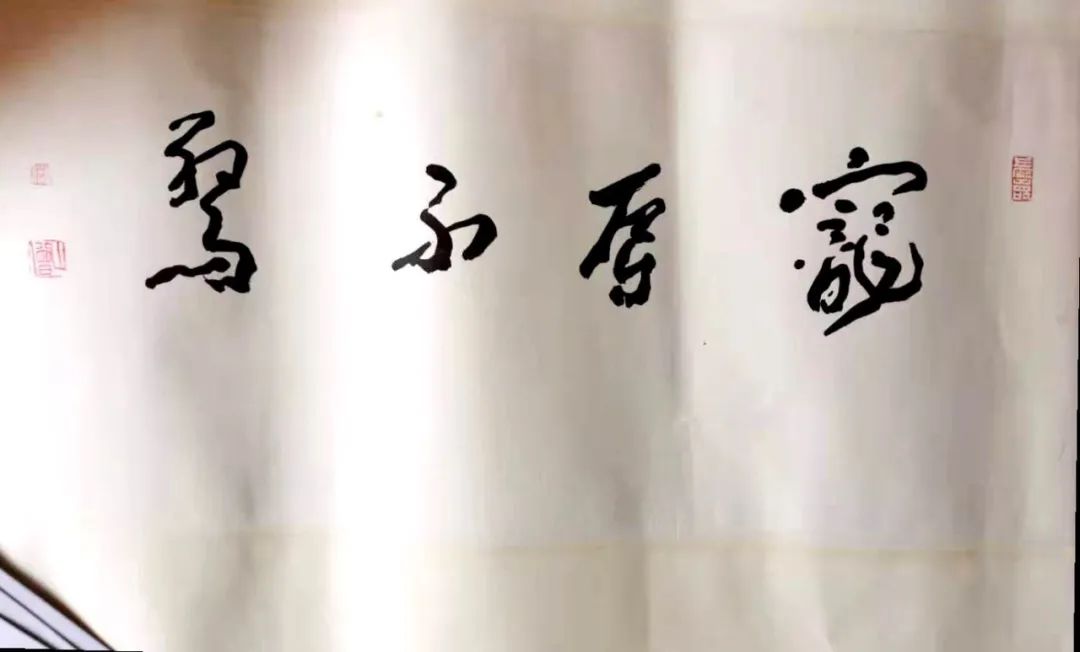 寵辱不驚